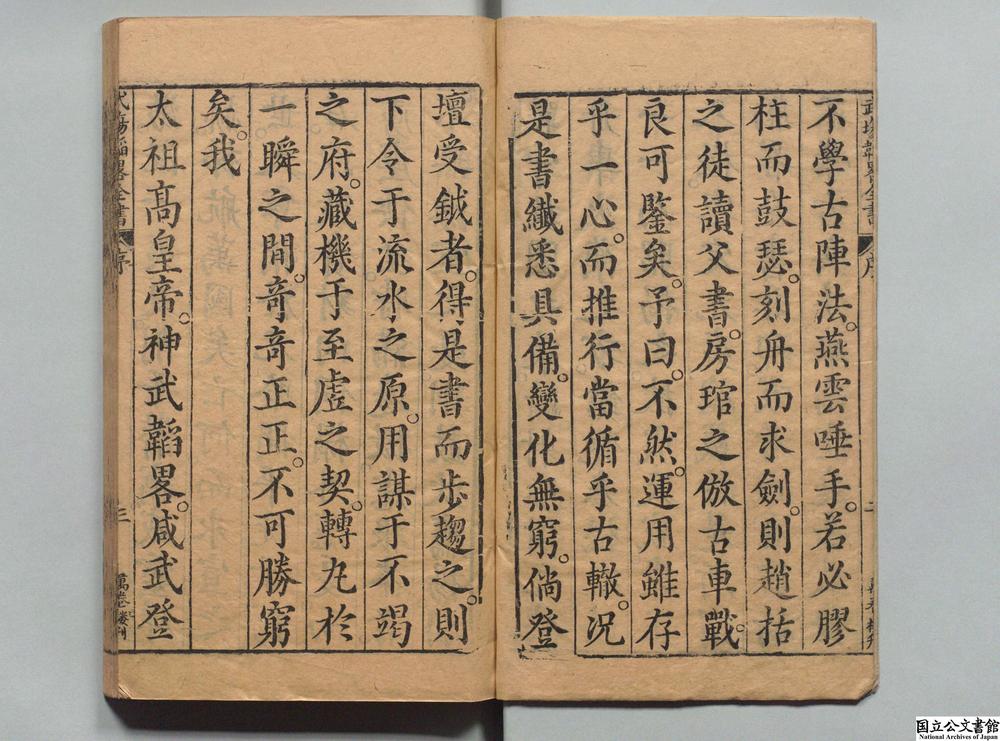 不學古陣法。燕雲唾手。若必膠
柱而鼓瑟。刻舟而求劍。則趙括
之徒讀父書。房琯之倣古車戰。
良可鑒矣。予曰。不然。運用雖存
乎一心。而推行當循乎古轍。況
是書纖悉具備。變化無窮。倘登
壇受鉞者。得是書而步趨之。則
下令于流水之原。用謀于不竭
之府。藏機于至虛之契。轉丸於
一瞬之間。奇奇正正。不可勝窮
矣。我
太祖高皇帝。神武韜畧。咸武登
武場韜畧全書
序
三
萬卷樓刊
国立公文書館
National Archives of Japan